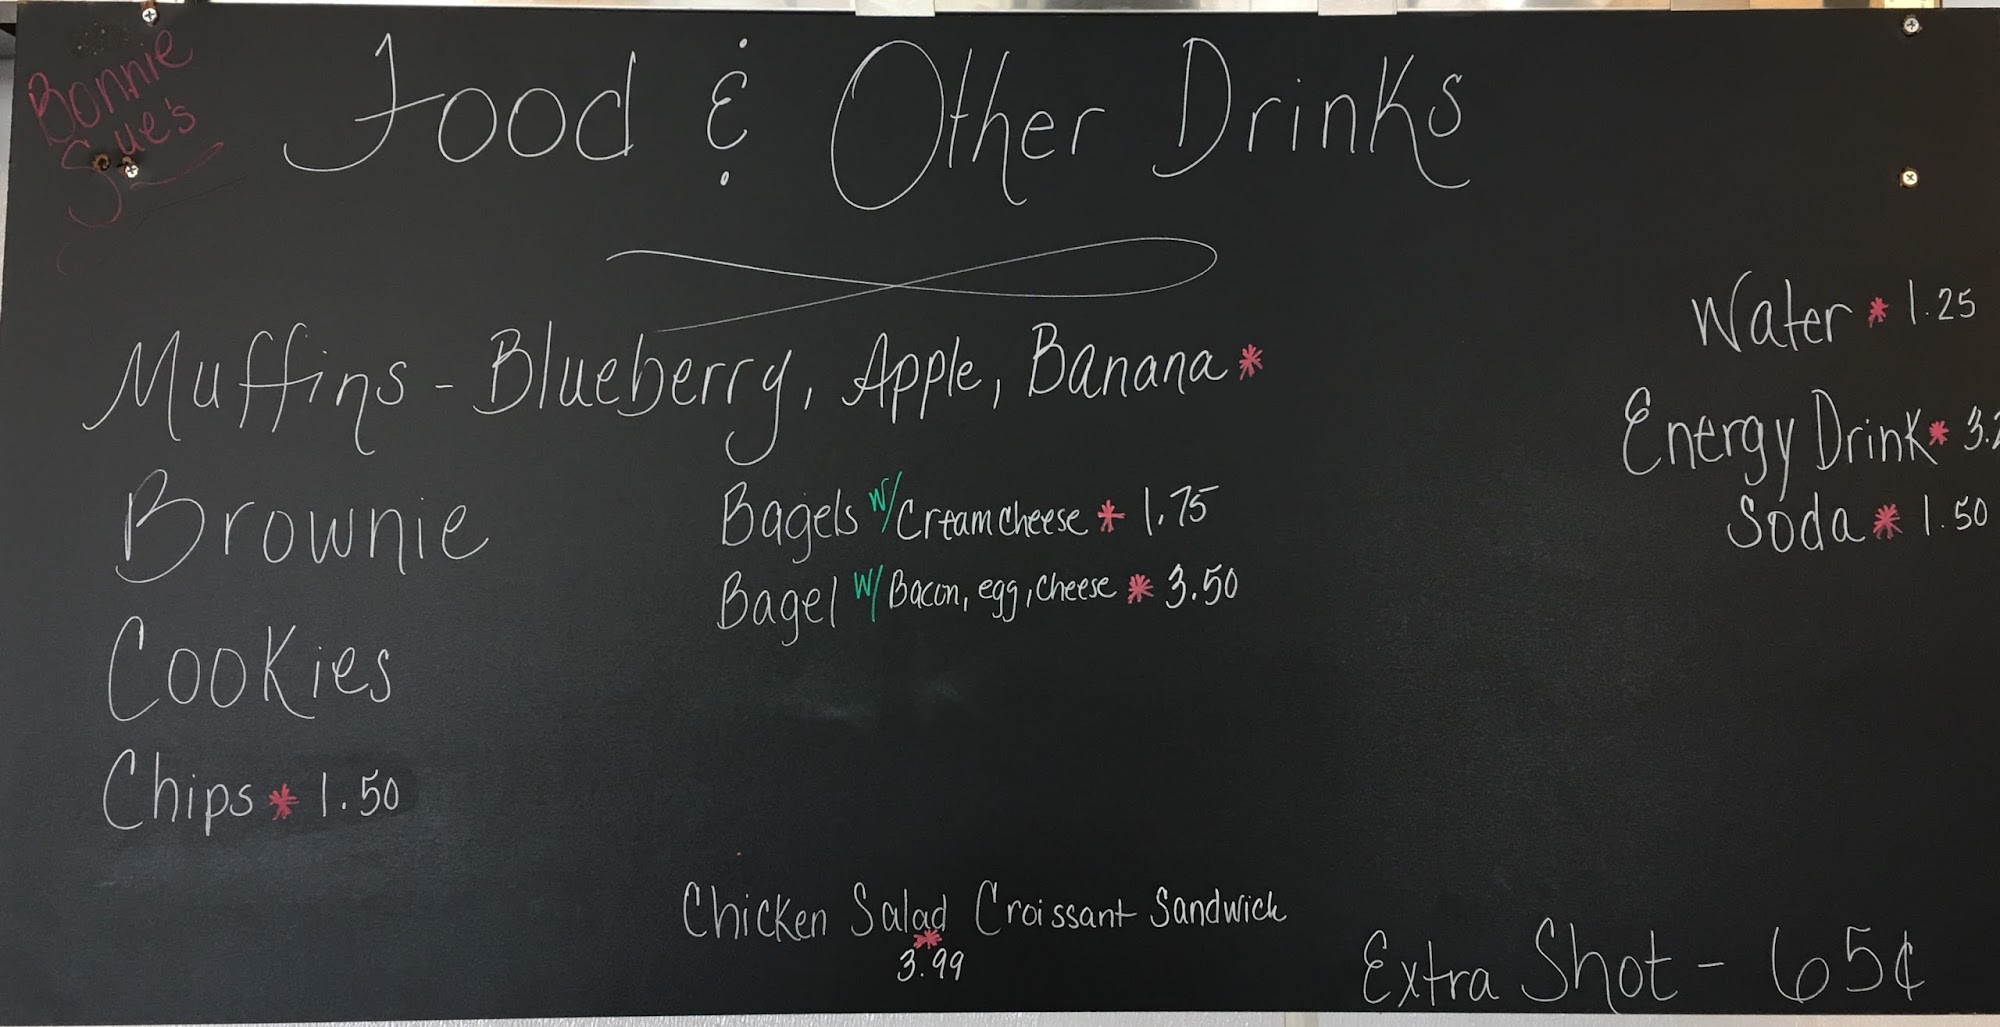 Bonnie
Sue's
Food & Other Drinks
Muffins - Blueberry, Apple, Banana *
Brownie
Cookies
Chips * 1.50
Bagels w/ Cream cheese * 1.75
Bagel w/ Bacon, egg, cheese * 3.50
Chicken Salad Croissant Sandwick
*
3.99
Water * 1.25
Energy Drink * 3.
Soda * 1.50
Extra Shot - 65¢